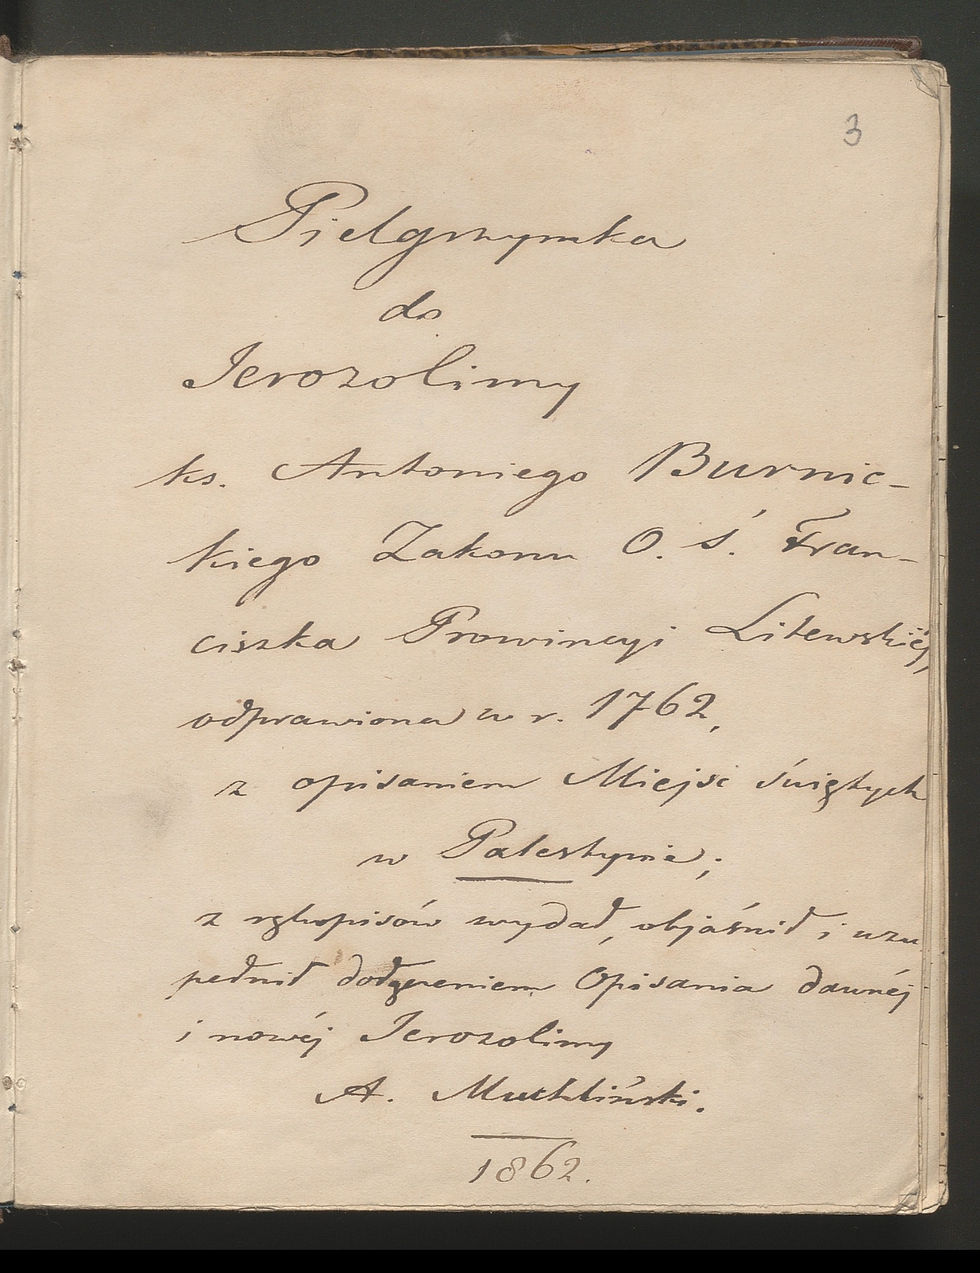 3
Pielgrzymka
do
Jerozolimy
ks. Antoniego Burnic-
kiego Zakonu O. Ś. Fran-
ciszka Prowincyi Litewskiéj,
odprawiona w r. 1762,
z opisaniem Miejsc świętych
w Palestynie;
z rękopisów wydał, objaśnił i uzu
pełnił dołączeniem Opisania dawnéj
i nowéj Jerozolimy
A. Muchliński.
1862.